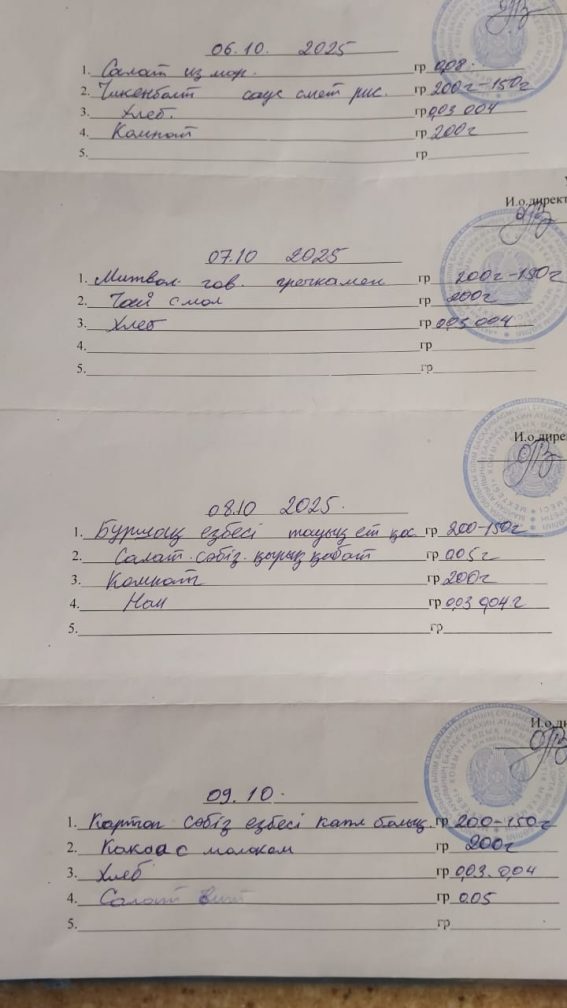 06.10. 2025
1. Салат из мор. гр 0,08.
2. Чикенболт соус смет рис. гр 200г-150г
3. Хлеб. гр 0,03 004
4. Компот гр 200г
5. гр
И.о.директ
07.10 2025
1. Митбол гов. гречкамен гр 200г-150г
2. Чай с мол гр 200г
3. Хлеб гр 0,03 004
4. гр
5. гр
И.о.дире
08.10 2025.
1. Бұршақ езбесі тауық ет қос. гр 200-150г
2. Салат. сәбіз. қырық қабат гр 005г
3. Компот гр 200г
4. Нан гр 0,03 0,04г
5. гр
И.о.ди
09.10.
1. Картоп сәбіз езбесі котл балық. гр 200-150г
2. Какао с молоком гр 200г
3. Хлеб гр 0,03. 0,04
4. Салат вит гр 0.05
5. гр